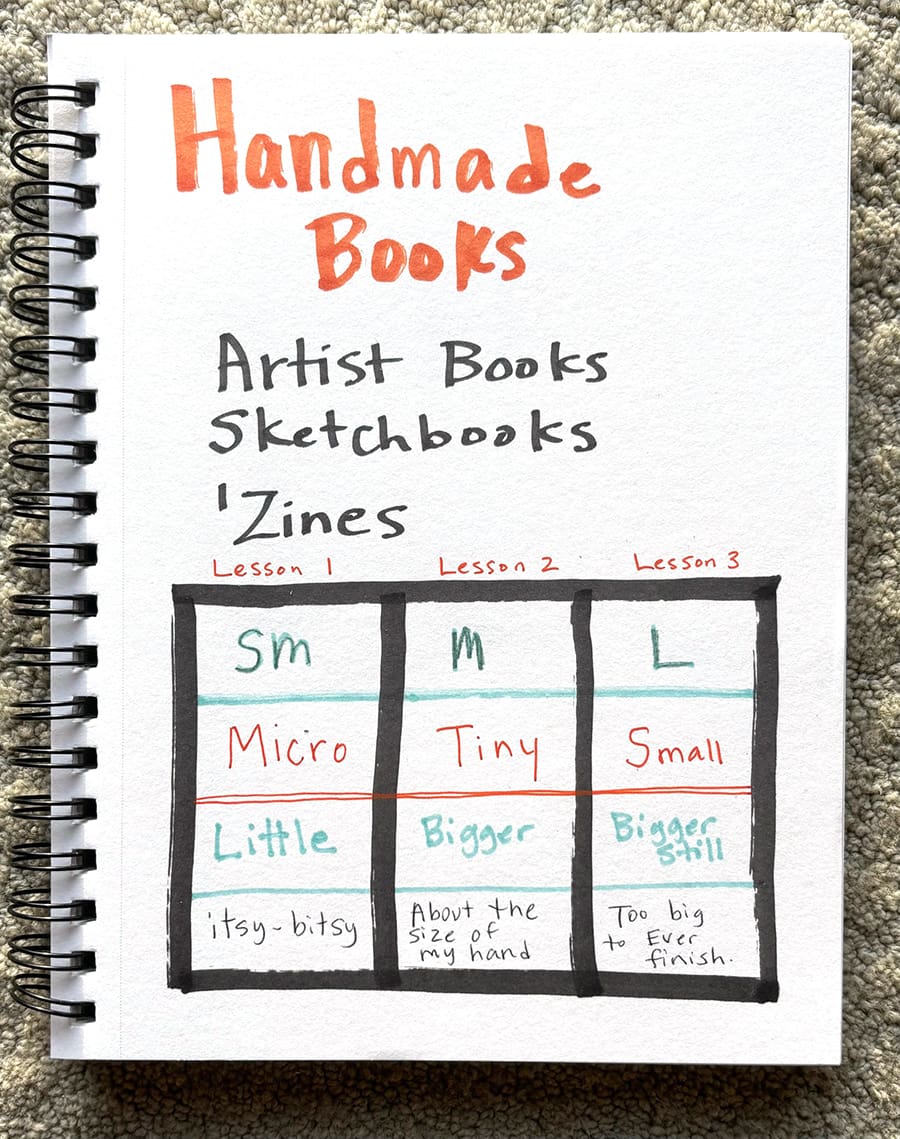 Handmade
Books
Artist Books
Sketchbooks
'Zines
Lesson 1 Lesson 2 Lesson 3
Sm M L
Micro Tiny Small
Little Bigger Bigger still
itsy-bitsy About the size of my hand Too big to Ever finish.